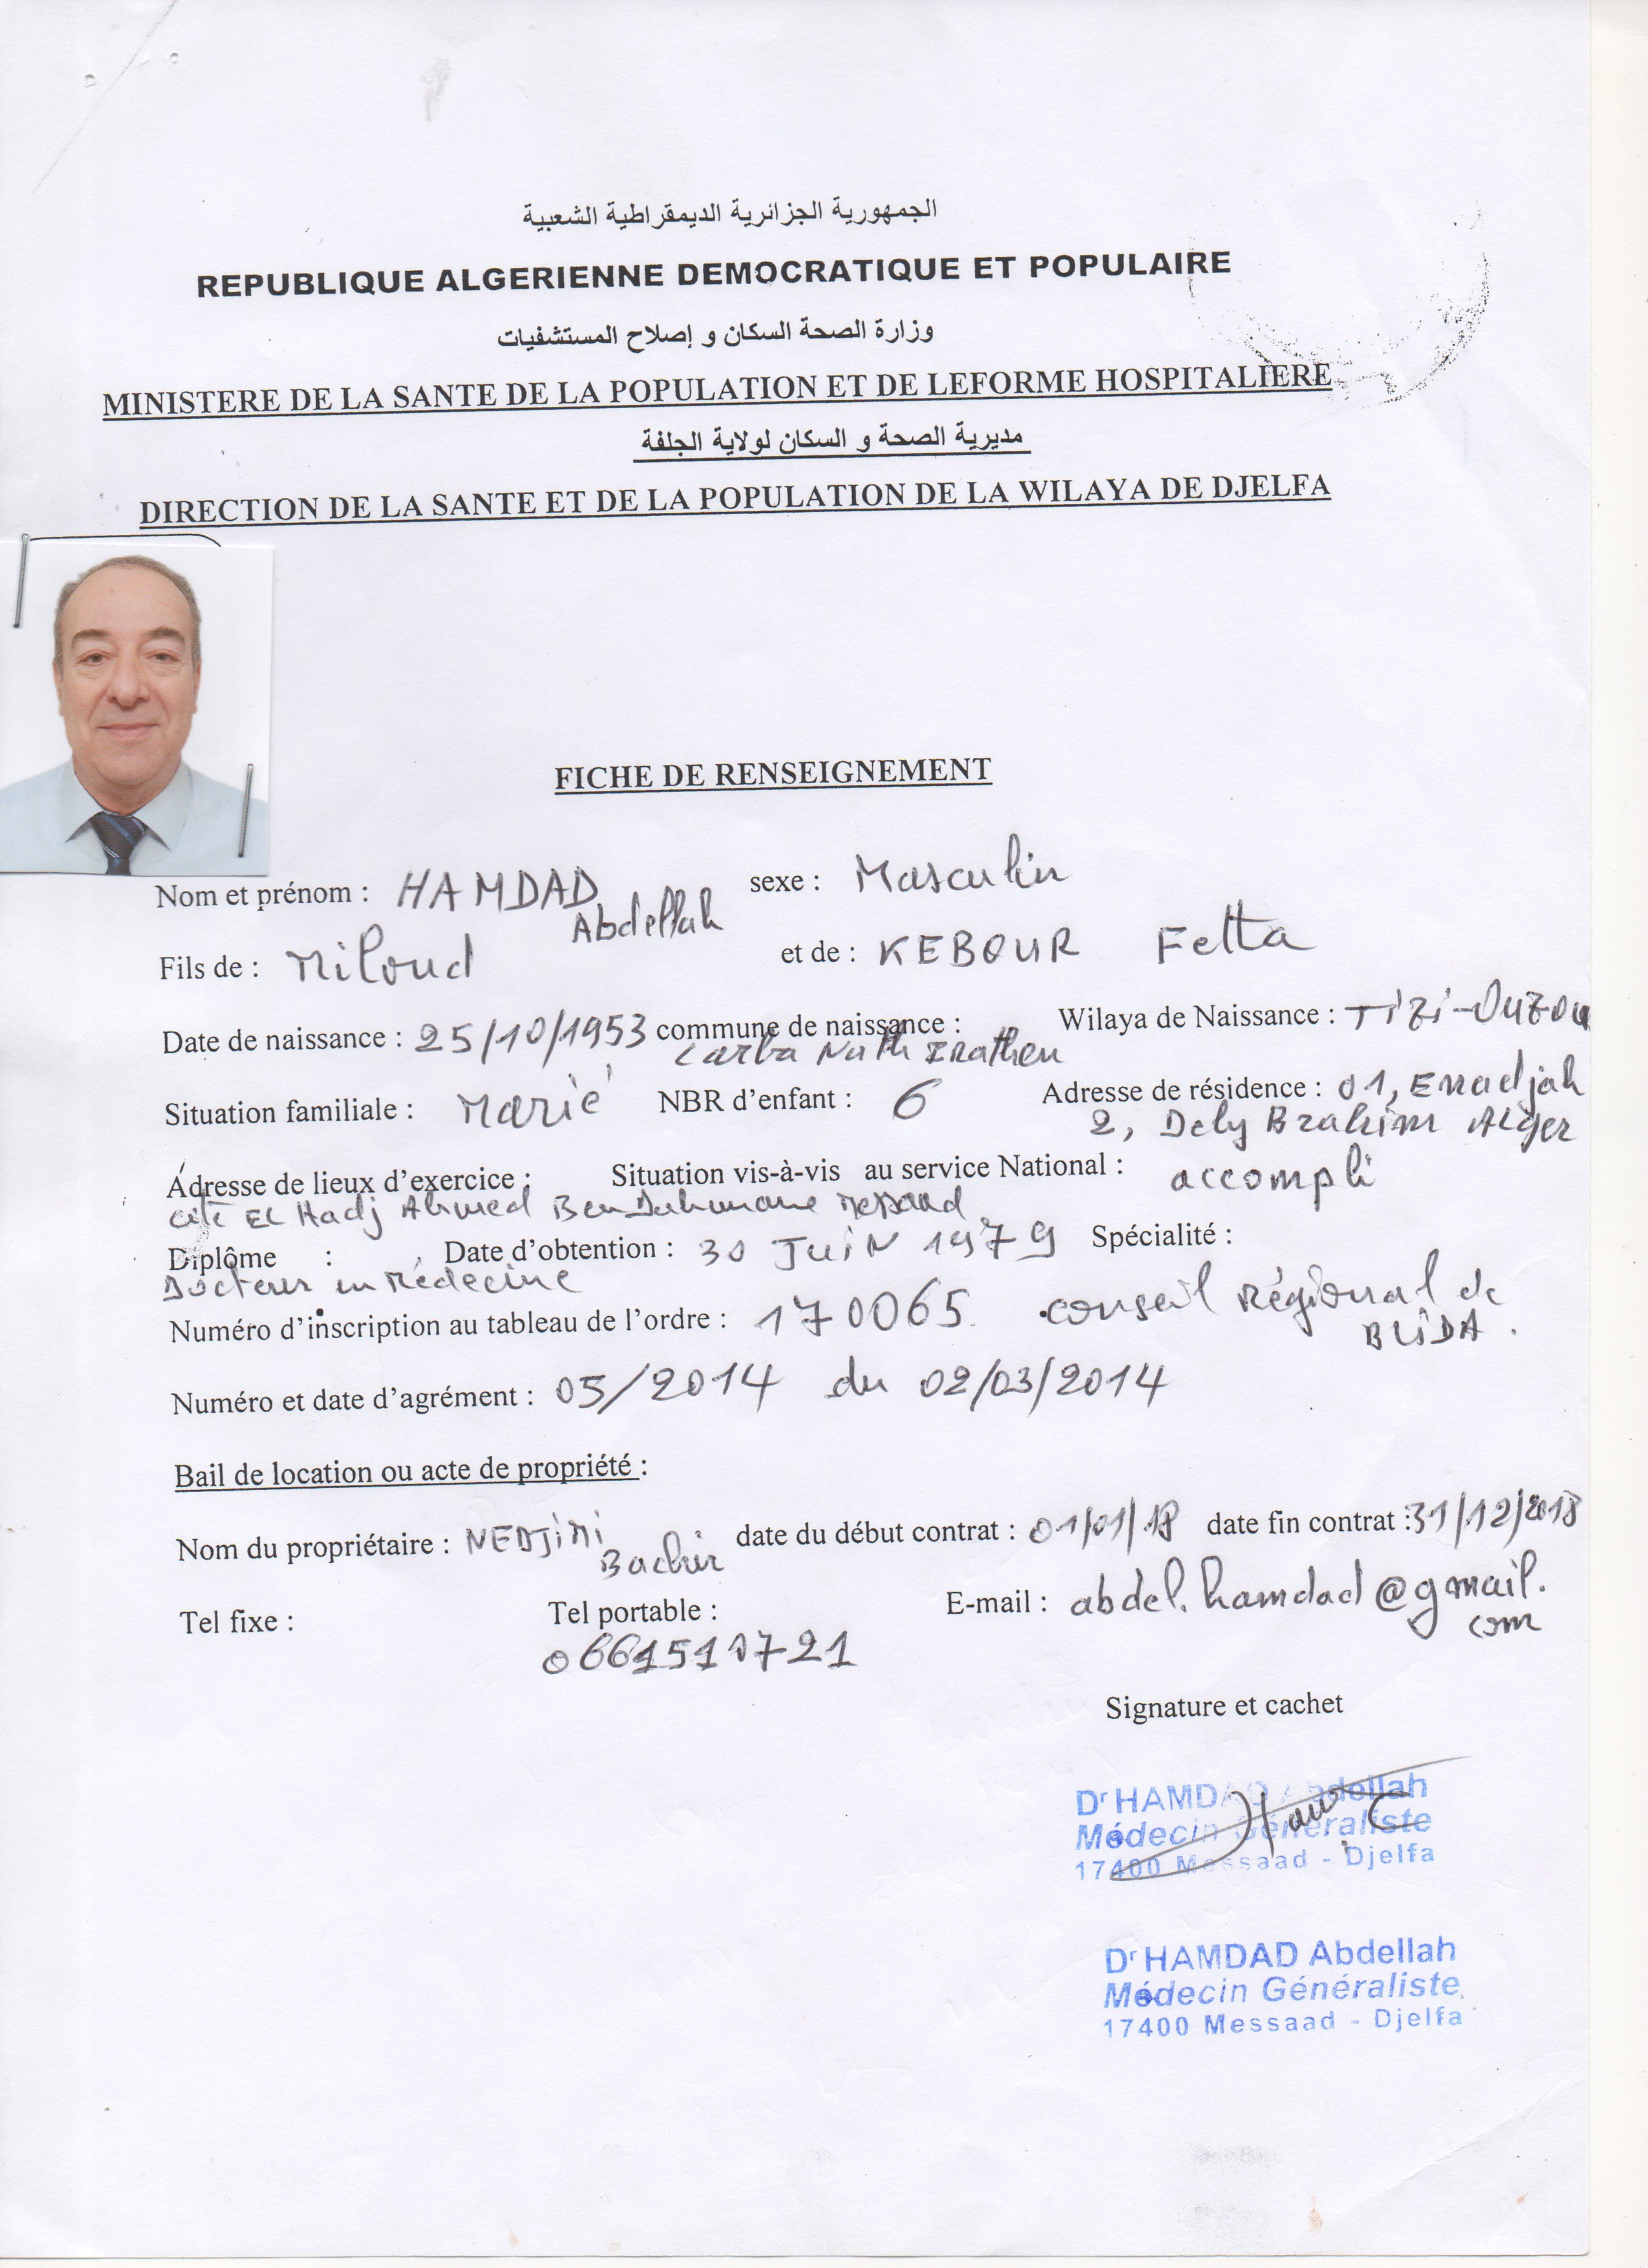 الجمهورية الجزائرية الديمقراطية الشعبية
REPUBLIQUE ALGERIENNE DEMOCRATIQUE ET POPULAIRE
وزارة الصحة السكان و إصلاح المستشفيات
MINISTERE DE LA SANTE DE LA POPULATION ET DE LEFORME HOSPITALIERE
مديرية الصحة و السكان لولاية الجلفة
DIRECTION DE LA SANTE ET DE LA POPULATION DE LA WILAYA DE DJELFA
FICHE DE RENSEIGNEMENT
Nom et prénom : HAMDAD Abdellah sexe : Masculin
Fils de : Miloud et de : KEBOUR Fetta
Date de naissance : 25/10/1953 commune de naissance : Larba Nath Irathen Wilaya de Naissance : Tizi-Ouzou
Situation familiale : Marié NBR d'enfant : 6 Adresse de résidence : 01, Ennadjah
2, Dely Brahim Alger
Adresse de lieux d'exercice : Situation vis-à-vis au service National : accompli
cité EL Hadj Ahmed Ben Dahmane Messaad
Diplôme : Date d'obtention : 30 JUIN 1979 Spécialité :
Docteur en Médecine
Numéro d'inscription au tableau de l'ordre : 170065 conseil Régional de
BLIDA.
Numéro et date d'agrément : 05/2014 du 02/03/2014
Bail de location ou acte de propriété :
Nom du propriétaire : NEDJIMI Bachir date du début contrat : 01/01/18 date fin contrat : 31/12/2018
Tel fixe : Tel portable : E-mail : abdel.hamdad@gmail.
com
0661510721
Signature et cachet
Dr HAMDAD Abdellah
Médecin Généraliste
17400 Messaad - Djelfa
Dr HAMDAD Abdellah
Médecin Généraliste
17400 Messaad - Djelfa